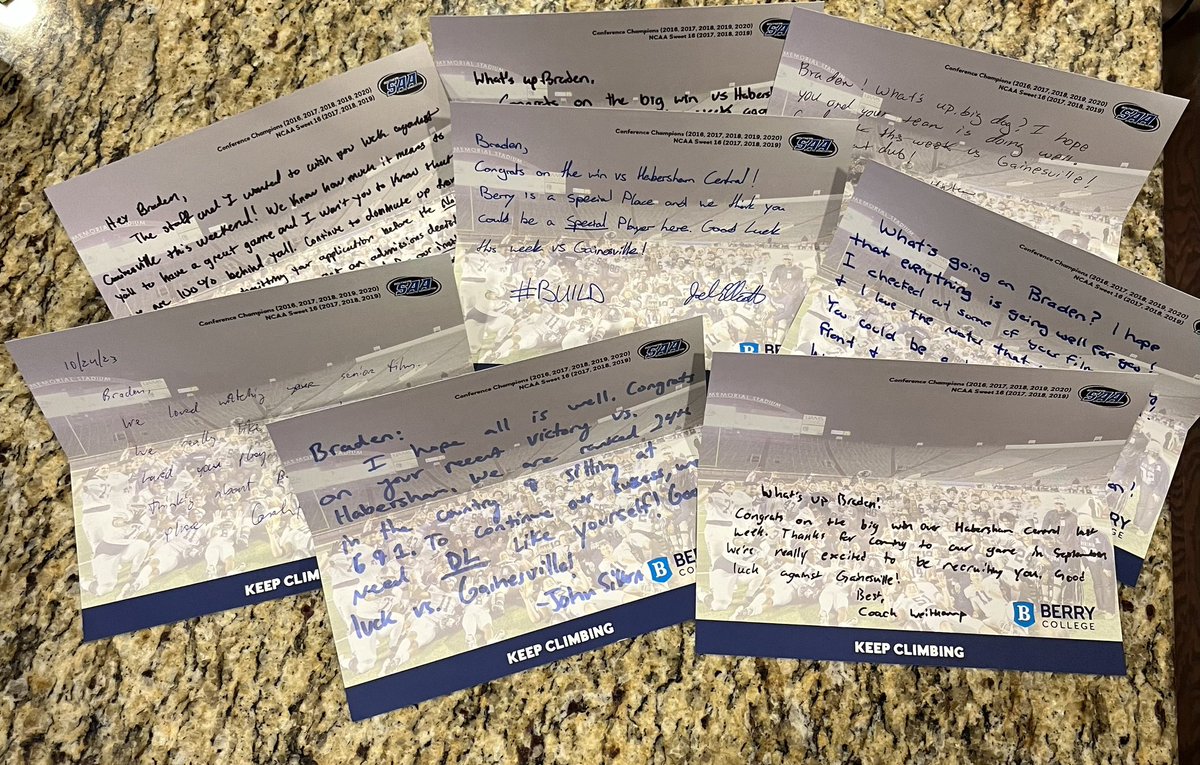 Conference Champions (2016, 2017, 2018, 2019, 2020)
NCAA Sweet 16 (2017, 2018, 2019)
SAA
What's up Braden,
Congrats on the big win vs Habersham
Conference Champions (2016, 2017, 2018, 2019, 2020)
NCAA Sweet 16 (2017, 2018, 2019)
SAA
MEMORIAL STADIUM
Braden! What's up big dog? I hope
you and your team is doing well
this week vs Gainesville!
dub!
Conference Champions (2016, 2017, 2018, 2019, 2020)
NCAA Sweet 16 (2017, 2018, 2019)
SAA
Hey Braden,
The staff and I wanted to wish you luck against
Gainesville this weekend! We know how much it means to
yall to have a great game and I won't you to know that
are 100% behind yall. Continue to dominate up
your application before the
an admissions
Conference Champions (2016, 2017, 2018, 2019, 2020)
NCAA Sweet 16 (2017, 2018, 2019)
SAA
MEMORIAL STADIUM
Braden,
Congrats on the win vs Habersham Central!
Berry is a special Place and we think you
could be a special Player here. Good Luck
this week vs Gainesville!
#BUILD
B BERRY
Conference Champions (2016, 2017, 2018, 2019, 2020)
NCAA Sweet 16 (2017, 2018, 2019)
What's going on Braden? I hope
that everything is going well for you!
I checked out some of your film
& I love the motor that
You could be a
front &
BERRY
COLLEGE
Conference Champions (2016, 2017, 2018, 2019, 2020)
NCAA Sweet 16 (2017, 2018, 2019)
SAA
MEMORIAL STADIUM
10/24/23
Braden,
We loved watching your senior film.
We really
loved your
KEEP CLIMBING
Conference Champions (2016, 2017, 2018, 2019, 2020)
NCAA Sweet 16 (2017, 2018, 2019)
SAA
Braden:
I hope all is well. Congrats
on your recent victory vs.
Habersham. We are ranked 24th
in the country & sitting at
6 & 1. To continue our success, we
need DL like yourself! Good
luck vs. Gainesville!
B BERRY
COLLEGE
KEEP CLIMBING
Conference Champions (2016, 2017, 2018, 2019, 2020)
NCAA Sweet 16 (2017, 2018, 2019)
SAA
MEMORIAL STADIUM
What's up Braden!
Congrats on the big win over Habersham Central last
week. Thanks for coming to our game in September
We're really excited to be recruiting you. Good
luck against Gainesville!
Best,
Coach Weitkamp
B BERRY
COLLEGE
KEEP CLIMBING